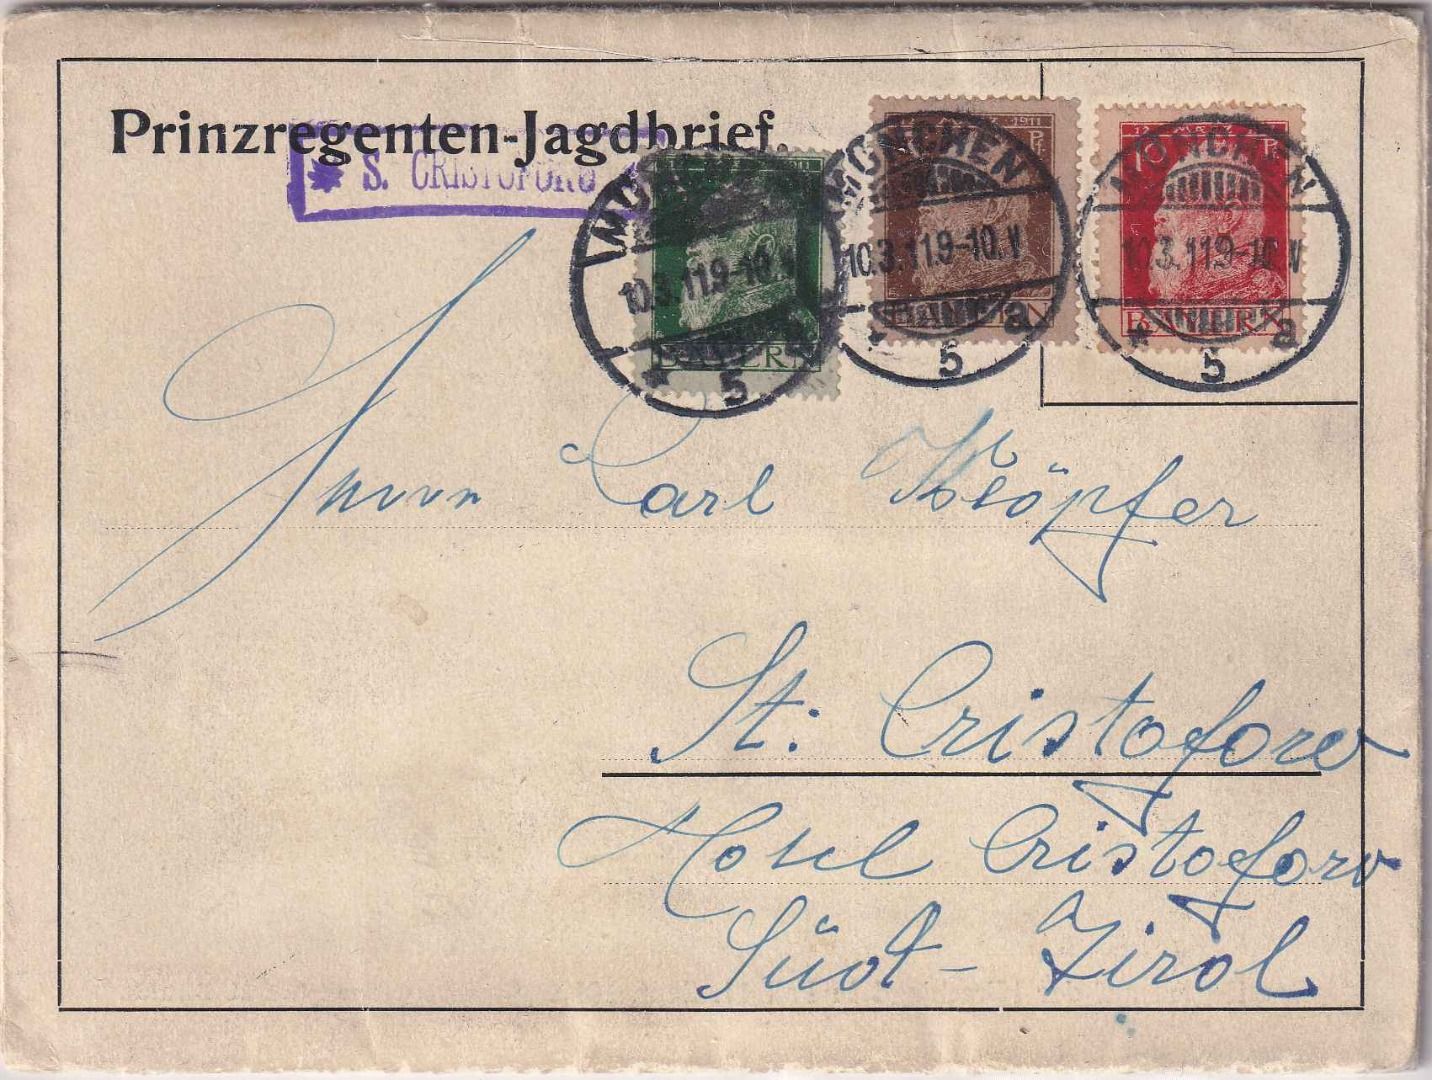 Prinzregenten-Jagdbrief.
* S. CRISTOFORO
MÜNCHEN
10.3.11.9-10.V
* 5 a
BAYERN
MÜNCHEN
1911
Pf.
10.3.11.9-10.V
BAYERN
* 5 a
MÜNCHEN
10 Pf.
10.3.11.9-10.V
BAYERN
* 5 a
Herrn Carl Klöpfer
St: Cristoforo
Hotel Cristoforo
Süd-Tirol